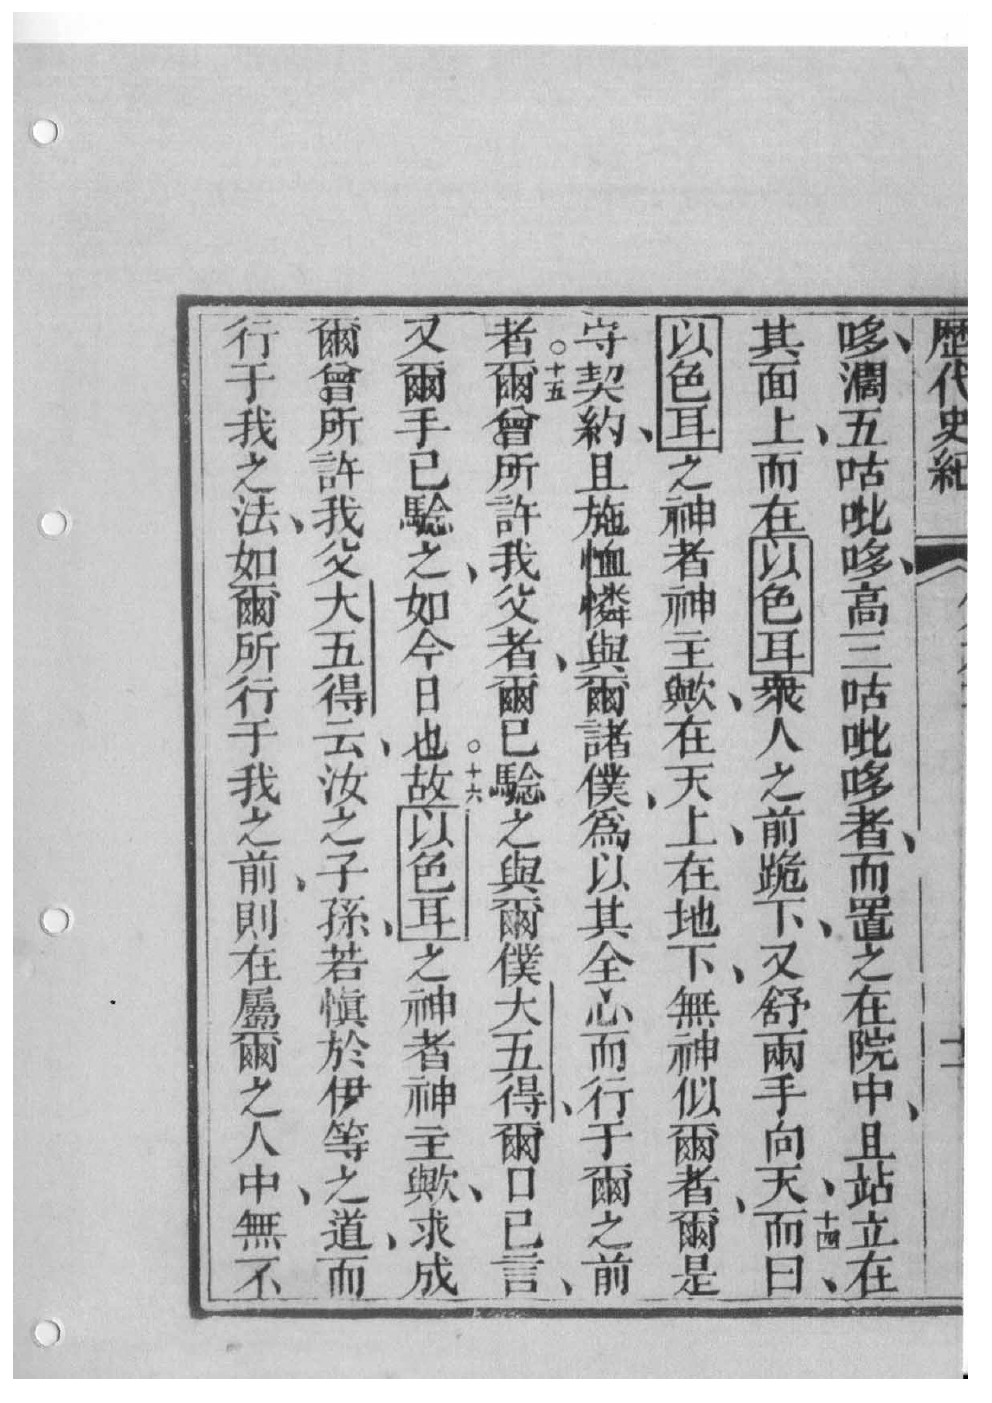 歷代史紀
十一
哆、濶五咕吡哆、高三咕吡哆者、而置之在院中、且站立在
其面上、而在以色耳衆人之前跪下、又舒兩手向天、十四而曰、
以色耳之神者神主歟、在天上、在地下、無神似爾者、爾是
守契約、且施恤憐與爾諸僕、爲以其全心而行于爾之前
者。十五爾曾所許我父者、爾已騐之與爾僕大五得、爾口已言、
又爾手已騐之、如今日也。十六故以色耳之神者神主歟、求成
爾曾所許我父大五得云、汝之子孫、若愼於伊等之道、而
行于我之法、如爾所行于我之前、則在屬爾之人中、無不